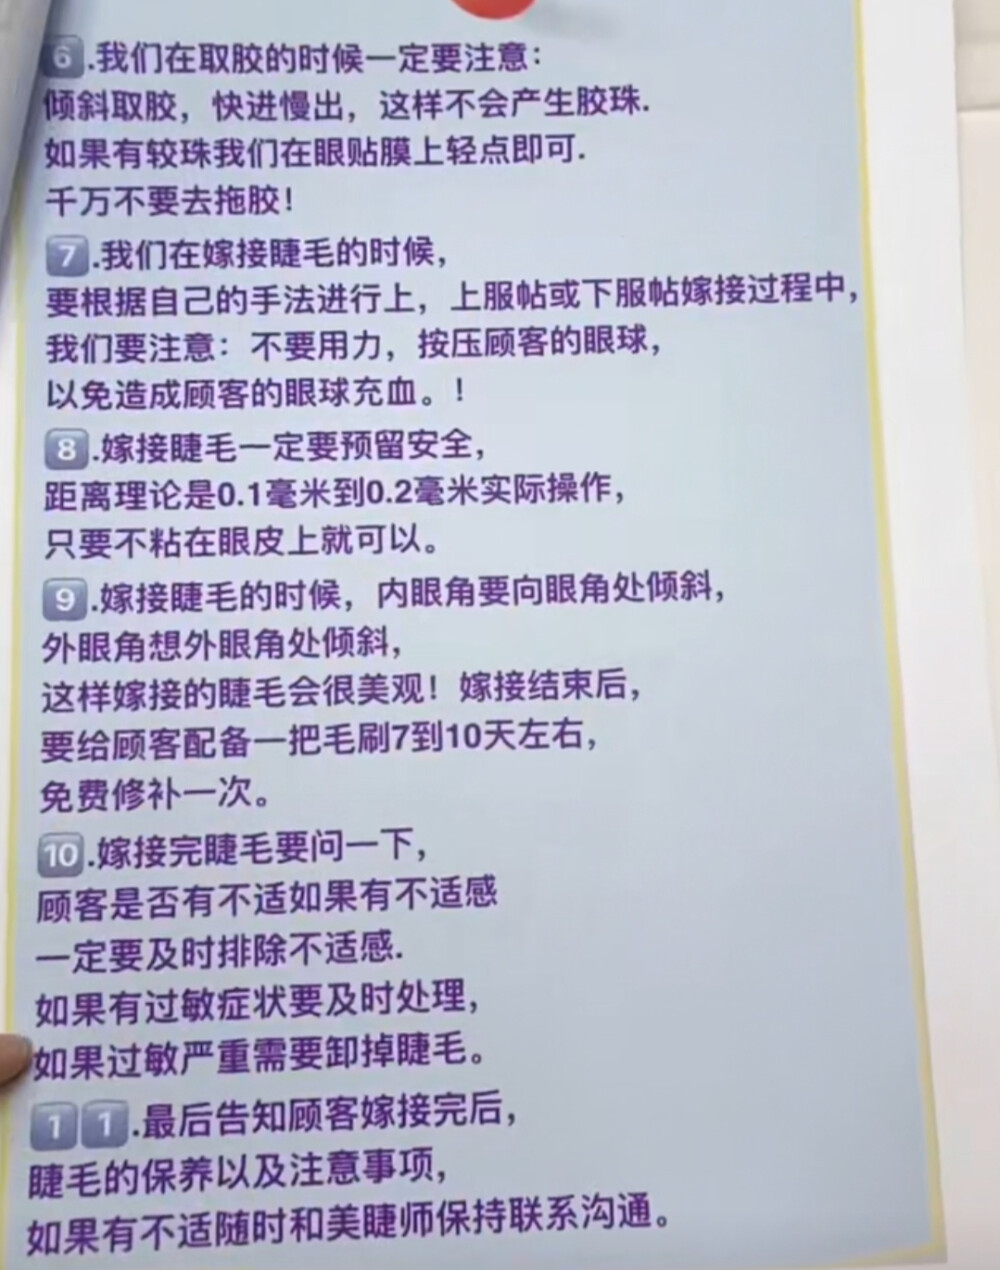 6.我们在取胶的时候一定要注意：
倾斜取胶，快进慢出，这样不会产生胶珠.
如果有较珠我们在眼贴膜上轻点即可.
千万不要去拖胶！
7.我们在嫁接睫毛的时候，
要根据自己的手法进行上，上服帖或下服帖嫁接过程中，
我们要注意：不要用力，按压顾客的眼球，
以免造成顾客的眼球充血。！
8.嫁接睫毛一定要预留安全，
距离理论是0.1毫米到0.2毫米实际操作，
只要不粘在眼皮上就可以。
9.嫁接睫毛的时候，内眼角要向眼角处倾斜，
外眼角想外眼角处倾斜，
这样嫁接的睫毛会很美观！嫁接结束后，
要给顾客配备一把毛刷7到10天左右，
免费修补一次。
10.嫁接完睫毛要问一下，
顾客是否有不适如果有不适感
一定要及时排除不适感.
如果有过敏症状要及时处理，
如果过敏严重需要卸掉睫毛。
11.最后告知顾客嫁接完后，
睫毛的保养以及注意事项，
如果有不适随时和美睫师保持联系沟通。